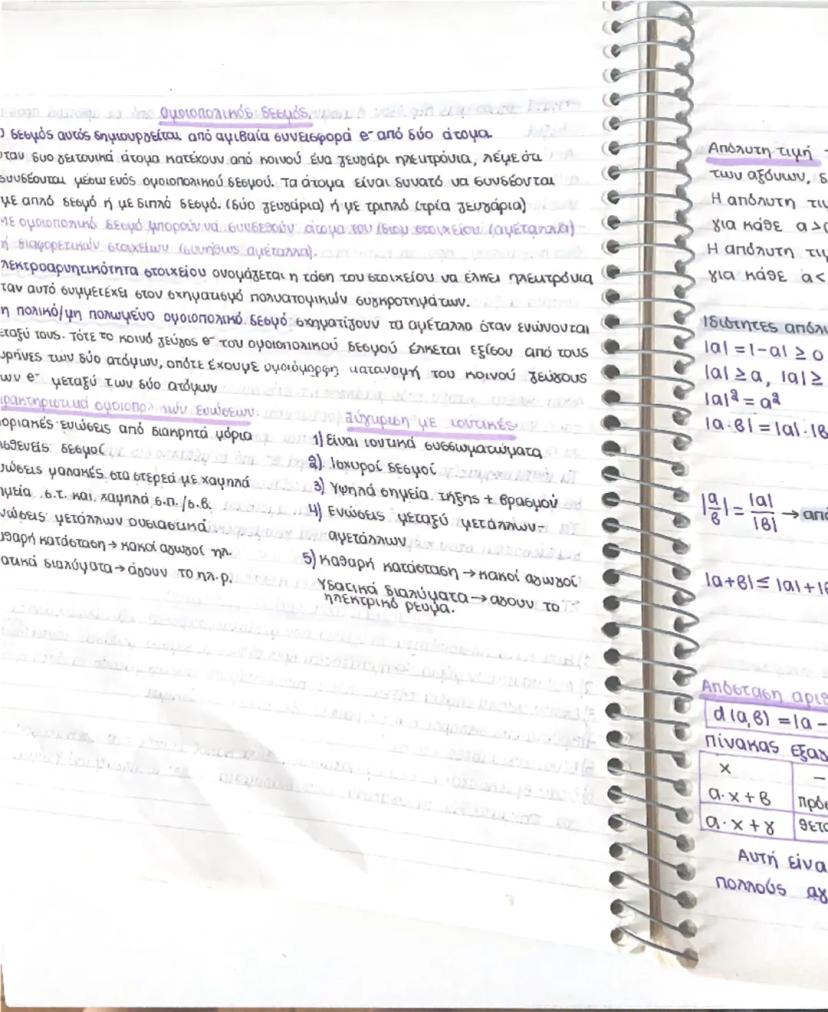 Ομοιοπολικός δεσμός.
δεσμός αυτός δημιουργείται από αμιβαία συνεισφορά e⁻ από δύο άτομα.
ταν δυο γειτονικά άτομα κατέχουν από κοινού ένα ζευγάρι ηλεκτρόνια, λέμε ότι
συνδέονται μέσω ενός ομοιοπολικού δεσμού. Τα άτομα είναι δυνατό να συνδέονται
με απλό δεσμό ή με διπλό δεσμό. (δύο ζευγάρια) ή με τριπλό (τρία ζευγάρια)
Με ομοιοπολικό δεσμό μπορούν να συνδεθούν άτομα του ίδιου στοιχείου (αμέταλλα)-
ή διαφορετικών στοιχείων (συνήθως αμέταλλα).
λεκτροαρνητικότητα στοιχείου ονομάζεται η τάση του στοιχείου να έλκει ηλεκτρόνια
ταν αυτό συμμετέχει στον σχηματισμό πολυατομικών συγκροτημάτων.
η πολικό/μη πολωμένο ομοιοπολικό δεσμό σχηματίζουν τα αμέταλλα όταν ενώνονται
εταξύ τους. Τότε το κοινό ζεύγος e⁻ του ομοιοπολικού δεσμού έλκεται εξίσου από τους
υρήνες των δύο ατόμων, οπότε έχουμε ομοιόμορφη κατανομή του κοινού ζεύγους
ων e⁻ μεταξύ των δύο ατόμων
αρακτηριστικά ομοιοπολ τικών ενώσεων:
οριακές ενώσεις από διακρητά μόρια
σθενείς δεσμοί
νώσεις μαλακές στα στερεά με χαμηλά
ημεία σ.τ. και χαμηλά σ.π./σ.β.
νώσεις μετάλλων ουσιαστικά
θαρή κατάσταση → κακοί αγωγοί ηλ.
ατικά διαλύματα → άγουν το ηλ.ρ.
Σύγκριση με ιοντικές:
1) Είναι ιοντικά συσσωματώματα
2) Ισχυροί δεσμοί
3) Υψηλά σημεία τήξης + βρασμού
4) Ενώσεις μεταξύ μετάλλων-
αμετάλλων
5) καθαρή κατάσταση → κακοί αγωγοί
Υδατικά διαλύματα → αγουν το
ηλεκτρικό ρεύμα.
Απόλυτη τιμή
των αξόνων,
Η απόλυτη τι
για κάθε α>
Η απόλυτη τι
για κάθε α<
Ιδιότητες απόλ
|α| = |-α| ≥ 0
|α| ≥ α, |α| ≥
|α|² = α²
|α·β| = |α|·|β
|α/β| = |α|/|β| → από
|α+β| ≤ |α|+|β
Απόσταση αρι
d(α,β) = |α-
Πίνακας
x −
α·x+β πρόσ
α·x+γ θετ
Αυτή είνα
πολλούς αγ